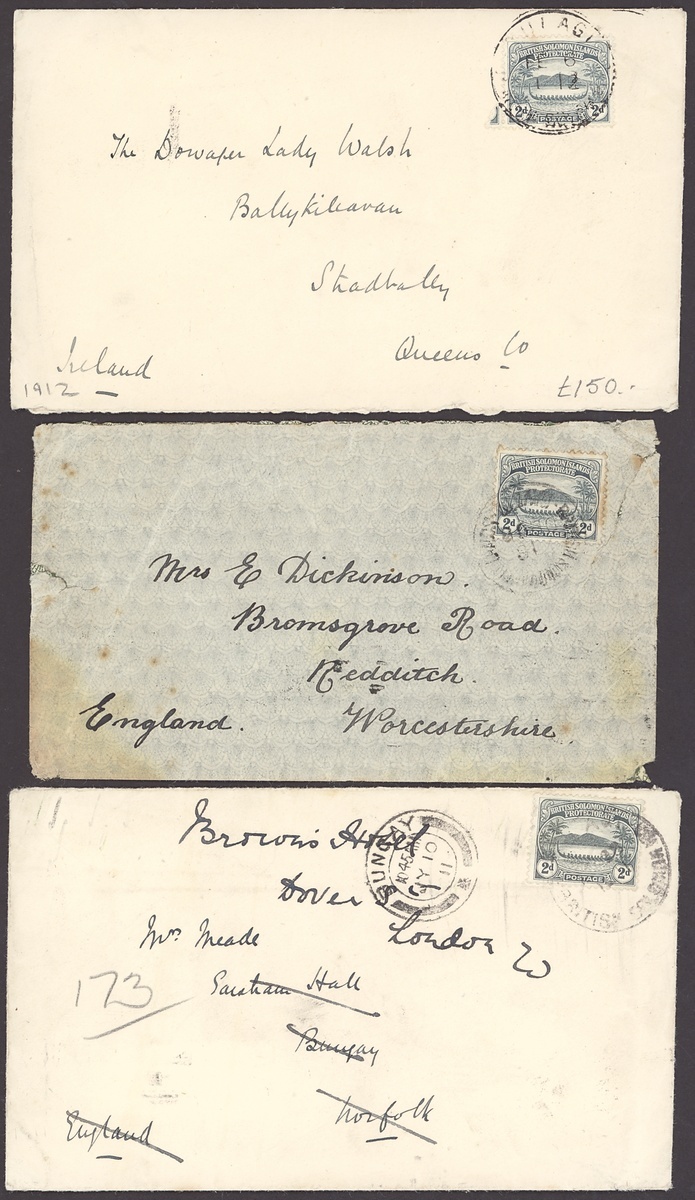 TULAGI
FE 6
12
BRITISH SOLOMON ISLANDS
PROTECTORATE
2d POSTAGE 2d
The Dowager Lady Walsh
Ballykilcavan
Stradbally
Queens Co
Ireland
1912
£150.-
BRITISH SOLOMON ISLANDS
PROTECTORATE
2d POSTAGE 2d
Mrs E Dickinson.
Bromsgrove Road.
Redditch.
England. Worcestershire
BRITISH SOLOMON ISLANDS
PROTECTORATE
2d POSTAGE 2d
BRITISH SOLOMON
BUNGAY
10 45 AM
10
11
Brown's Hotel
Dover
London W
Mrs Meade
173
Earsham Hall
Bungay
Norfolk
England